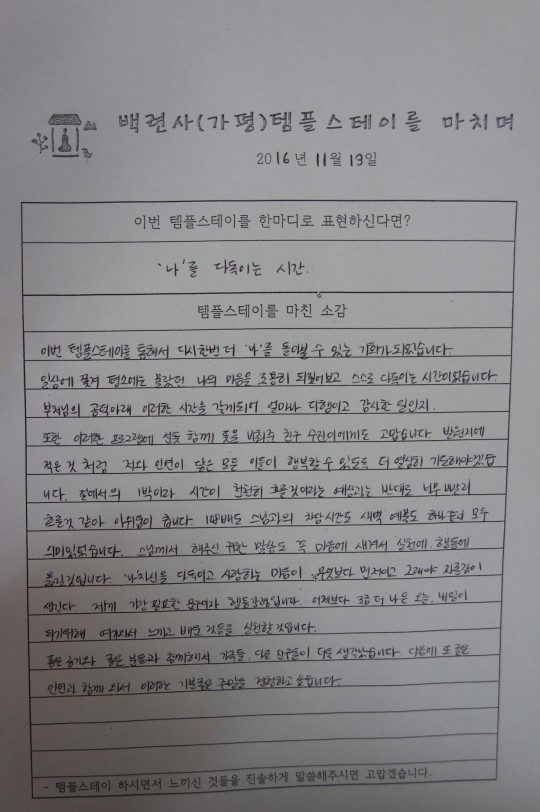 백련사(가평)템플스테이를 마치며
2016년 11월 13일
이번 템플스테이를 한마디로 표현하신다면?
'나'를 다독이는 시간.
템플스테이를 마친 소감
이번 템플스테이를 통해서 다시한번 더 '나'를 돌아볼 수 있는 기회가 되었습니다.
일상에 쫓겨 평소에는 몰랐던 나의 마음을 조용히 되짚어보고 스스로 다독이는 시간이었습니다.
부처님의 공덕아래 이러한 시간을 갖게되어 얼마나 다행이고 감사한 일인지.
또한 이러한 프로그램에 선뜻 함께 있어 친구 수진이에게도 고맙습니다. 발원지에
적은 것 처럼 저와 인연이 닿은 모든 이들이 행복할 수 있도록 더 열심히 기도해야겠습
니다. 절에서의 1박이라 시간이 천천히 흐를것이라는 예상과는 반대로 너무 빨리
흐른것 같아 아쉬움이 큽니다. 108배도 스님과의 차담시간도 새벽 예불도 하나같이 모두
의미있었습니다. 스님께서 해주신 귀한 말씀도 꼭 마음에 새겨서 실천에, 행동에
옮길것입니다. '나'자신을 다독이고 사랑하는 마음이 무엇보다 먼저이고 그래야 자존감이
생긴다. 제게 가장 필요한 행동강령입니다. 어제보다 3g 더 나은 오늘, 내일이
되기위해 여기에서 느끼고 배운 것들을 실천할 것입니다.
좋은 공기와 좋은 분들과 함께해서 가족들, 다른 친구들이 더욱 생각났습니다. 다음에 또 좋은
인연과 함께 와서 이러한 기분좋은 주말을 경험하고 싶습니다.
- 템플스테이 하시면서 느끼신 것들을 진솔하게 말씀해주시면 고맙겠습니다.